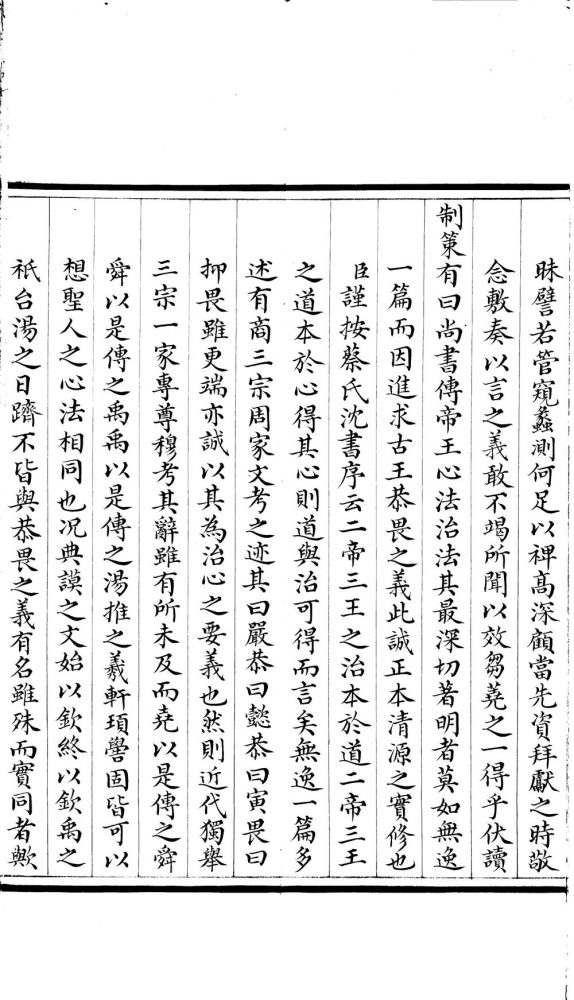 昧譬若管窺蠡測何足以裨高深顧當先資拜獻之時敬
念敷奏以言之義敢不竭所聞以效芻蕘之一得乎伏讀
制策有曰尚書傳帝王心法治法其最深切著明者莫如無逸
一篇而因進求古王恭畏之義此誠正本清源之實修也
臣謹按蔡氏沈書序云二帝三王之治本於道二帝三王
之道本於心得其心則道與治可得而言矣無逸一篇多
述有商三宗周家文考之迹其曰嚴恭曰懿恭曰寅畏曰
抑畏雖更端亦誠以其為治心之要義也然則近代獨舉
三宗一家專尊穆考其辭雖有所未及而堯以是傳之舜
舜以是傳之禹禹以是傳之湯推之羲軒頊嚳固皆可以
想聖人之心法相同也况典謨之文始以欽終以欽禹之
祇台湯之日躋不皆與恭畏之義有名雖殊而實同者歟